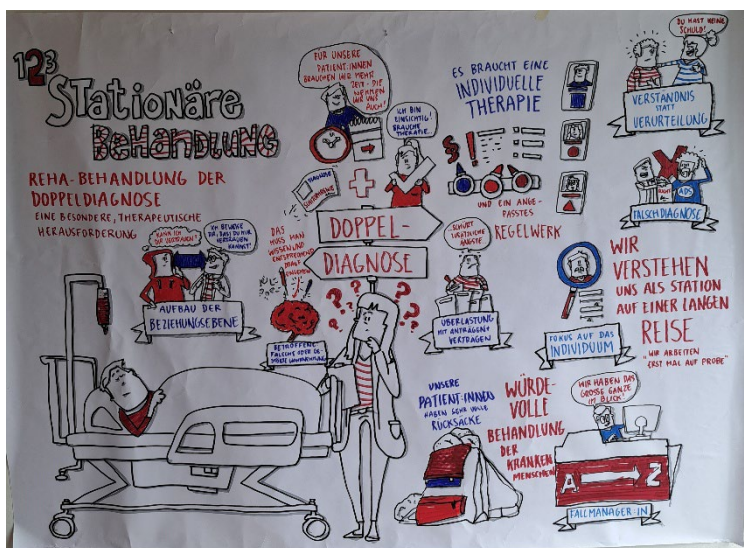 123
STATIONÄRE
BEHANDLUNG
REHA-BEHANDLUNG DER
DOPPELDIAGNOSE
EINE BESONDERE, THERAPEUTISCHE
HERAUSFORDERUNG
KANN ICH
DIR VERTRAUEN?
ICH BEWEISE
DIR, DASS DU MIR
VERTRAUEN
KANNST!
AUFBAU DER
BEZIEHUNGSEBENE
FÜR UNSERE
PATIENT:INNEN
BRAUCHEN WIR MEHR
ZEIT - DIE
NEHMEN
WIR UNS
AUCH!
ICH BIN
EINSICHTIG!
BRAUCHE
THERAPIE.
DIAGNOSE
DOPPEL-
DIAGNOSE
DAS
MUSS MAN
WISSEN UND
ENTSPRECHEND
DRAUF
EINGEHEN
BETROFFENE
FALSCHE ODER GE-
STÖRTE WAHRNEHMUNG
? ? ? ? ? ?
ES BRAUCHT EINE
INDIVIDUELLE
THERAPIE
§ !
UND EIN ANGE-
PASSTES
REGELWERK
...SCHÜRT
ZUSÄTZLICHE
ÄNGSTE
ÜBERLASTUNG
MIT ANTRÄGEN +
VERTRÄGEN
DU HAST KEINE
SCHULD!
VERSTÄNDNIS
STATT
VERURTEILUNG
ADS
FALSCHDIAGNOSE
FOKUS AUF DAS
INDIVIDUUM
WIR
VERSTEHEN
UNS ALS STATION
AUF EINER LANGEN
REISE
"WIR ARBEITEN
ERST MAL AUF PROBE"
UNSERE
PATIENT:INNEN
HABEN SEHR VOLLE
RUCKSÄCKE
WÜRDE-
VOLLE
BEHANDLUNG
DER
KRANKEN
MENSCHEN
WIR HABEN DAS
GROSSE GANZE
IM BLICK!
A Z
FALLMANAGER:IN